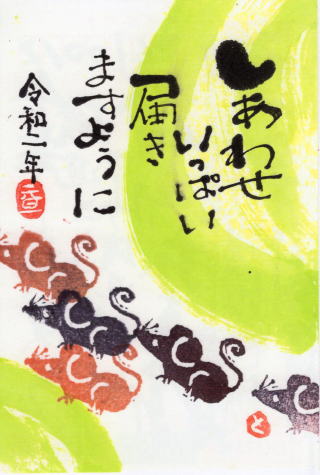 しあわせ
いっぱい
届き
ますように
令和一年
と